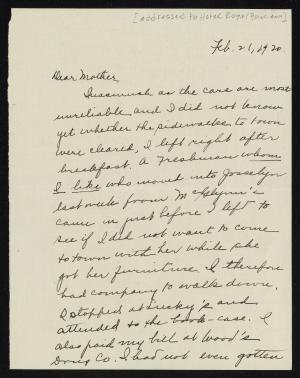 [addressed to Hotel
Feb. 21, 1920.
Dear Mother,
Inasmuch as the cars are most
unreliable and I did not know
yet whether the sidewalks to town
were cleared, I left right after
breakfast. A Freshman whom
I like who moved into Josselyn
last week from McGlynn's
came in just before I left to
see if I did not want to come
to town with her while she
got her furniture. I therefore
had company to walk down.
I stopped at Luckey's and
attended to the book-case. I
also paid my bill at Wood's
Drug Co. I had not even gotten